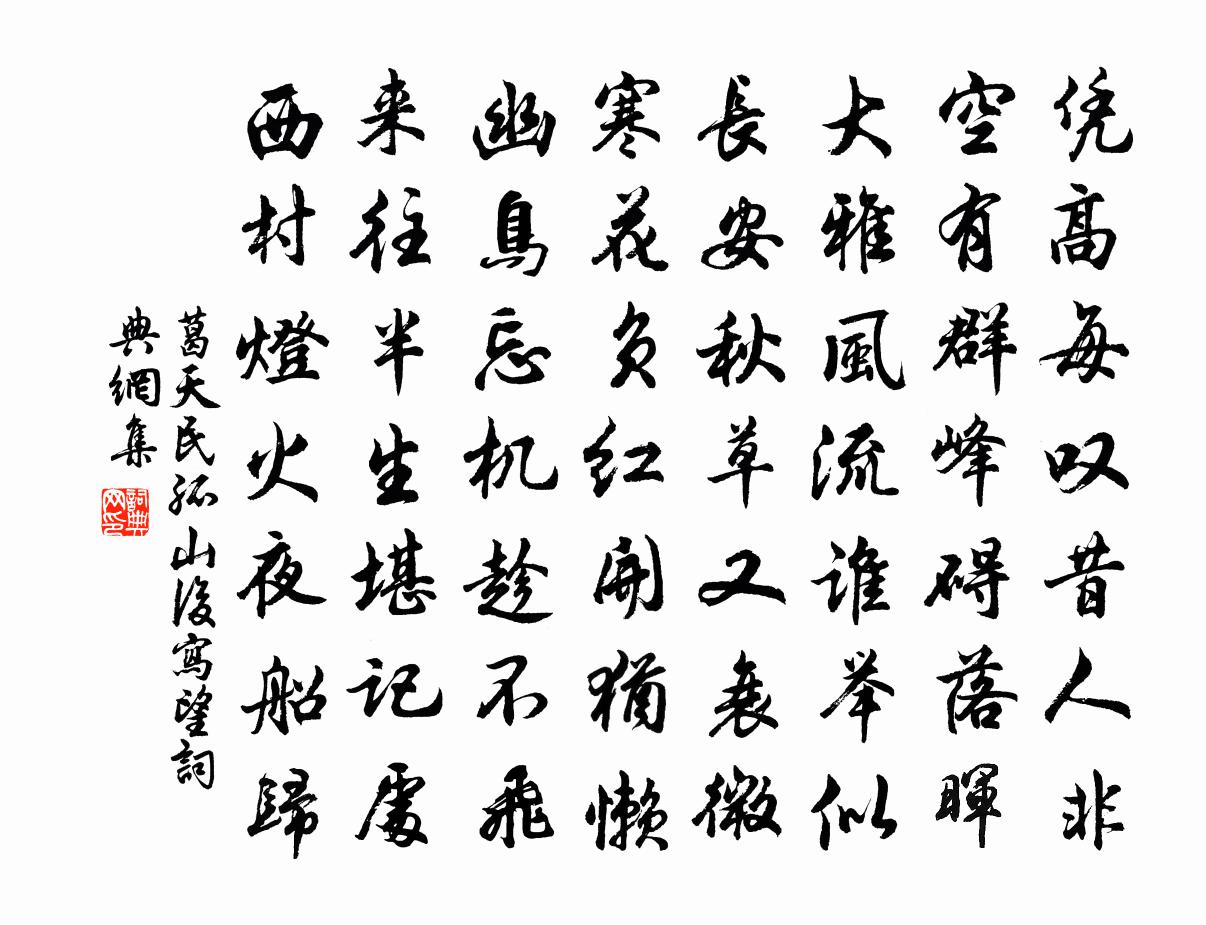 凭高每叹昔人非
空有群峰碍落暉
大雅風流谁举似
長安秋草又衰微
寒花负红開猶懒
幽鳥忘机趁不飛
来往半生堪记處
西村燈火夜船歸
葛天民孤山後寫望詞
典網集
詞典
网印